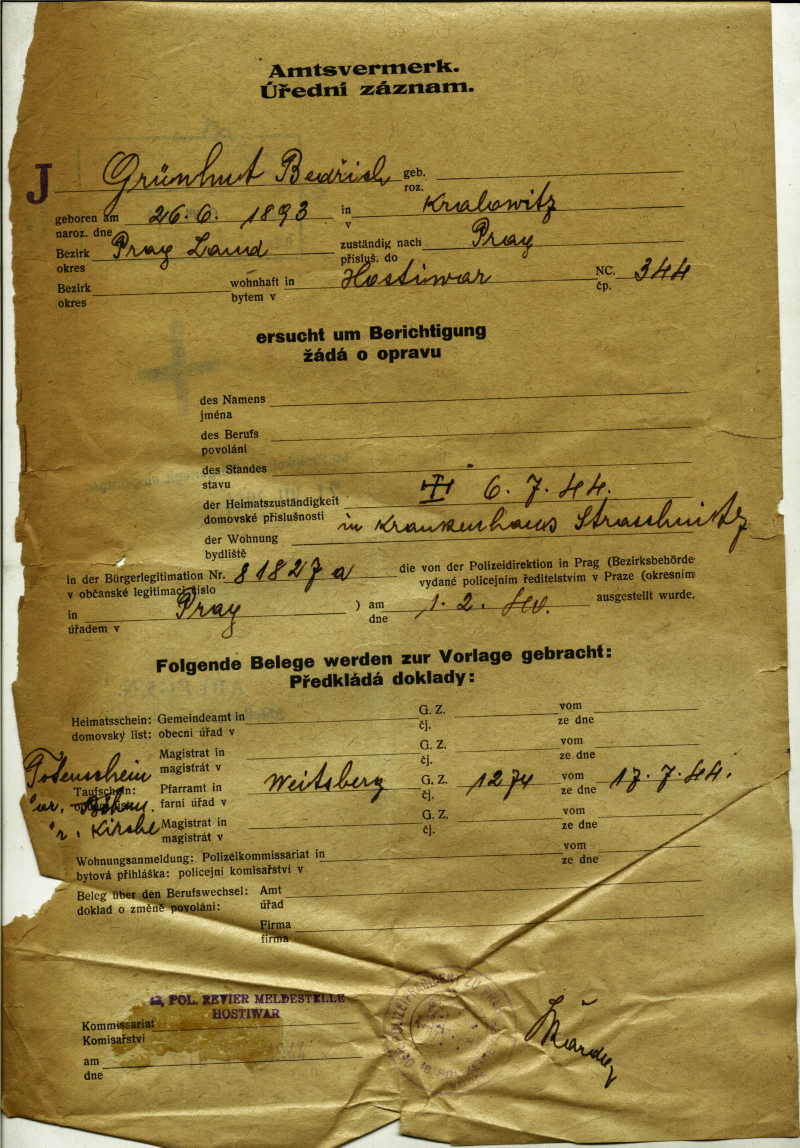 Amtsvermerk.
Úřední záznam.
J Grünhut Bedřich geb.
roz.
geboren am 26. 6. 1893 in Kralowitz
naroz. dne v
Bezirk Prag Land zuständig nach Prag
okres přísluš. do
Bezirk wohnhaft in Hostiwar NC. 344
okres bytem v čp.
ersucht um Berichtigung
žádá o opravu
des Namens
jména
des Berufs
povolání
des Standes
stavu
der Heimatszuständigkeit 6. 7. 44.
domovské příslušnosti
der Wohnung in Krankenhaus Straschnitz
bydliště
in der Bürgerlegitimation Nr. 81827 a die von der Polizeidirektion in Prag (Bezirksbehörde
v občanské legitimaci číslo vydané policejním ředitelstvím v Praze (okresním
in Prag ) am 1. 2. 40. ausgestellt wurde.
úřadem v dne
Folgende Belege werden zur Vorlage gebracht:
Předkládá doklady:
Heimatsschein: Gemeindeamt in G. Z. vom
domovský list: obecní úřad v čj. ze dne
Magistrat in G. Z. vom
magistrát v čj. ze dne
Totenschein
Taufschein: Pfarramt in Weitsberg G. Z. 1274 vom 17. 7. 44.
farní úřad v čj. ze dne
Kirche Magistrat in G. Z. vom
magistrát v čj. ze dne
Wohnungsanmeldung: Polizeikommissariat in vom
bytová přihláška: policejní komisařství v ze dne
Beleg über den Berufswechsel: Amt
doklad o změně povolání: úřad
Firma
firma
POL. REVIER MELDESTELLE
HOSTIWAR
Kommissariat
Komisařství
am
dne